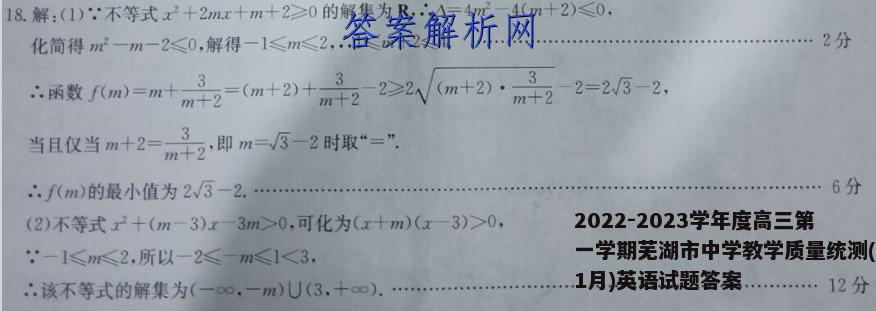 18.解:(1)∵不等式 x²+2mx+m+2≥0 的解集为 R,∴Δ=4m²-4(m+2)≤0,
答案解析网
化简得 m²-m-2≤0,解得-1≤m≤2, 2分
∴函数 f(m)=m+3/(m+2)=(m+2)+3/(m+2)-2≥2√((m+2)·3/(m+2))-2=2√3-2,
当且仅当 m+2=3/(m+2),即 m=√3-2 时取“=”.
∴f(m)的最小值为 2√3-2. …… 6分
(2)不等式 x²+(m-3)x-3m>0,可化为(x+m)(x-3)>0,
∵-1≤m≤2,所以-2≤-m≤1<3,
∴该不等式的解集为(-∞,-m)∪(3,+∞). …… 12分
2022-2023学年度高三第
一学期芜湖市中学教学质量统测(
1月)英语试题答案